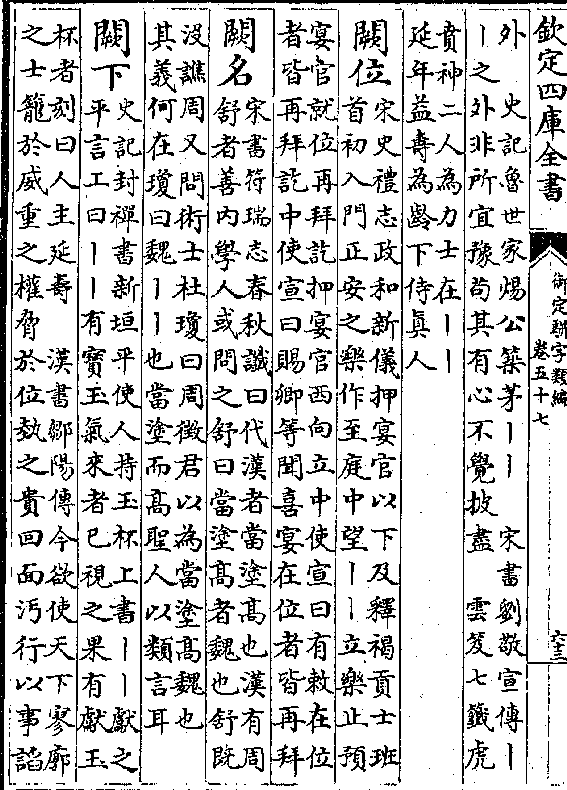 欽定四庫全書
御定駢字類編
卷五十七
六十三
外　史記魯世家煬公築茅丨丨　宋書劉敬宣傳丨
丨之外非所宜豫苟其有心不覺披盡　雲笈七籤虎
賁神二人為力士在丨丨
延年益壽為齡下侍真人
闕位
宋史禮志政和新儀押宴官以下及釋褐貢士班
首初入門正安之樂作至庭中望丨丨立樂止預
宴官就位再拜訖押宴官西向立中使宣曰有敕在位
者皆再拜訖中使宣曰賜卿等聞喜宴在位者皆再拜
闕名
宋書符瑞志春秋讖曰代漢者當塗髙也漢有周
舒者善内學人或問之舒曰當塗髙者魏也舒既
沒譙周又問術士杜瓊曰周徴君以為當塗髙魏也
其義何在瓊曰魏丨丨也當塗而髙聖人以類言耳
闕下
史記封禪書新垣平使人持玉杯上書丨丨獻之
平言工曰丨丨有寳玉氣來者已視之果有獻玉
杯者刻曰人主延壽　漢書鄒陽傳今欲使天下寥廓
之士籠於威重之權脅於位埶之貴回面汚行以事諂